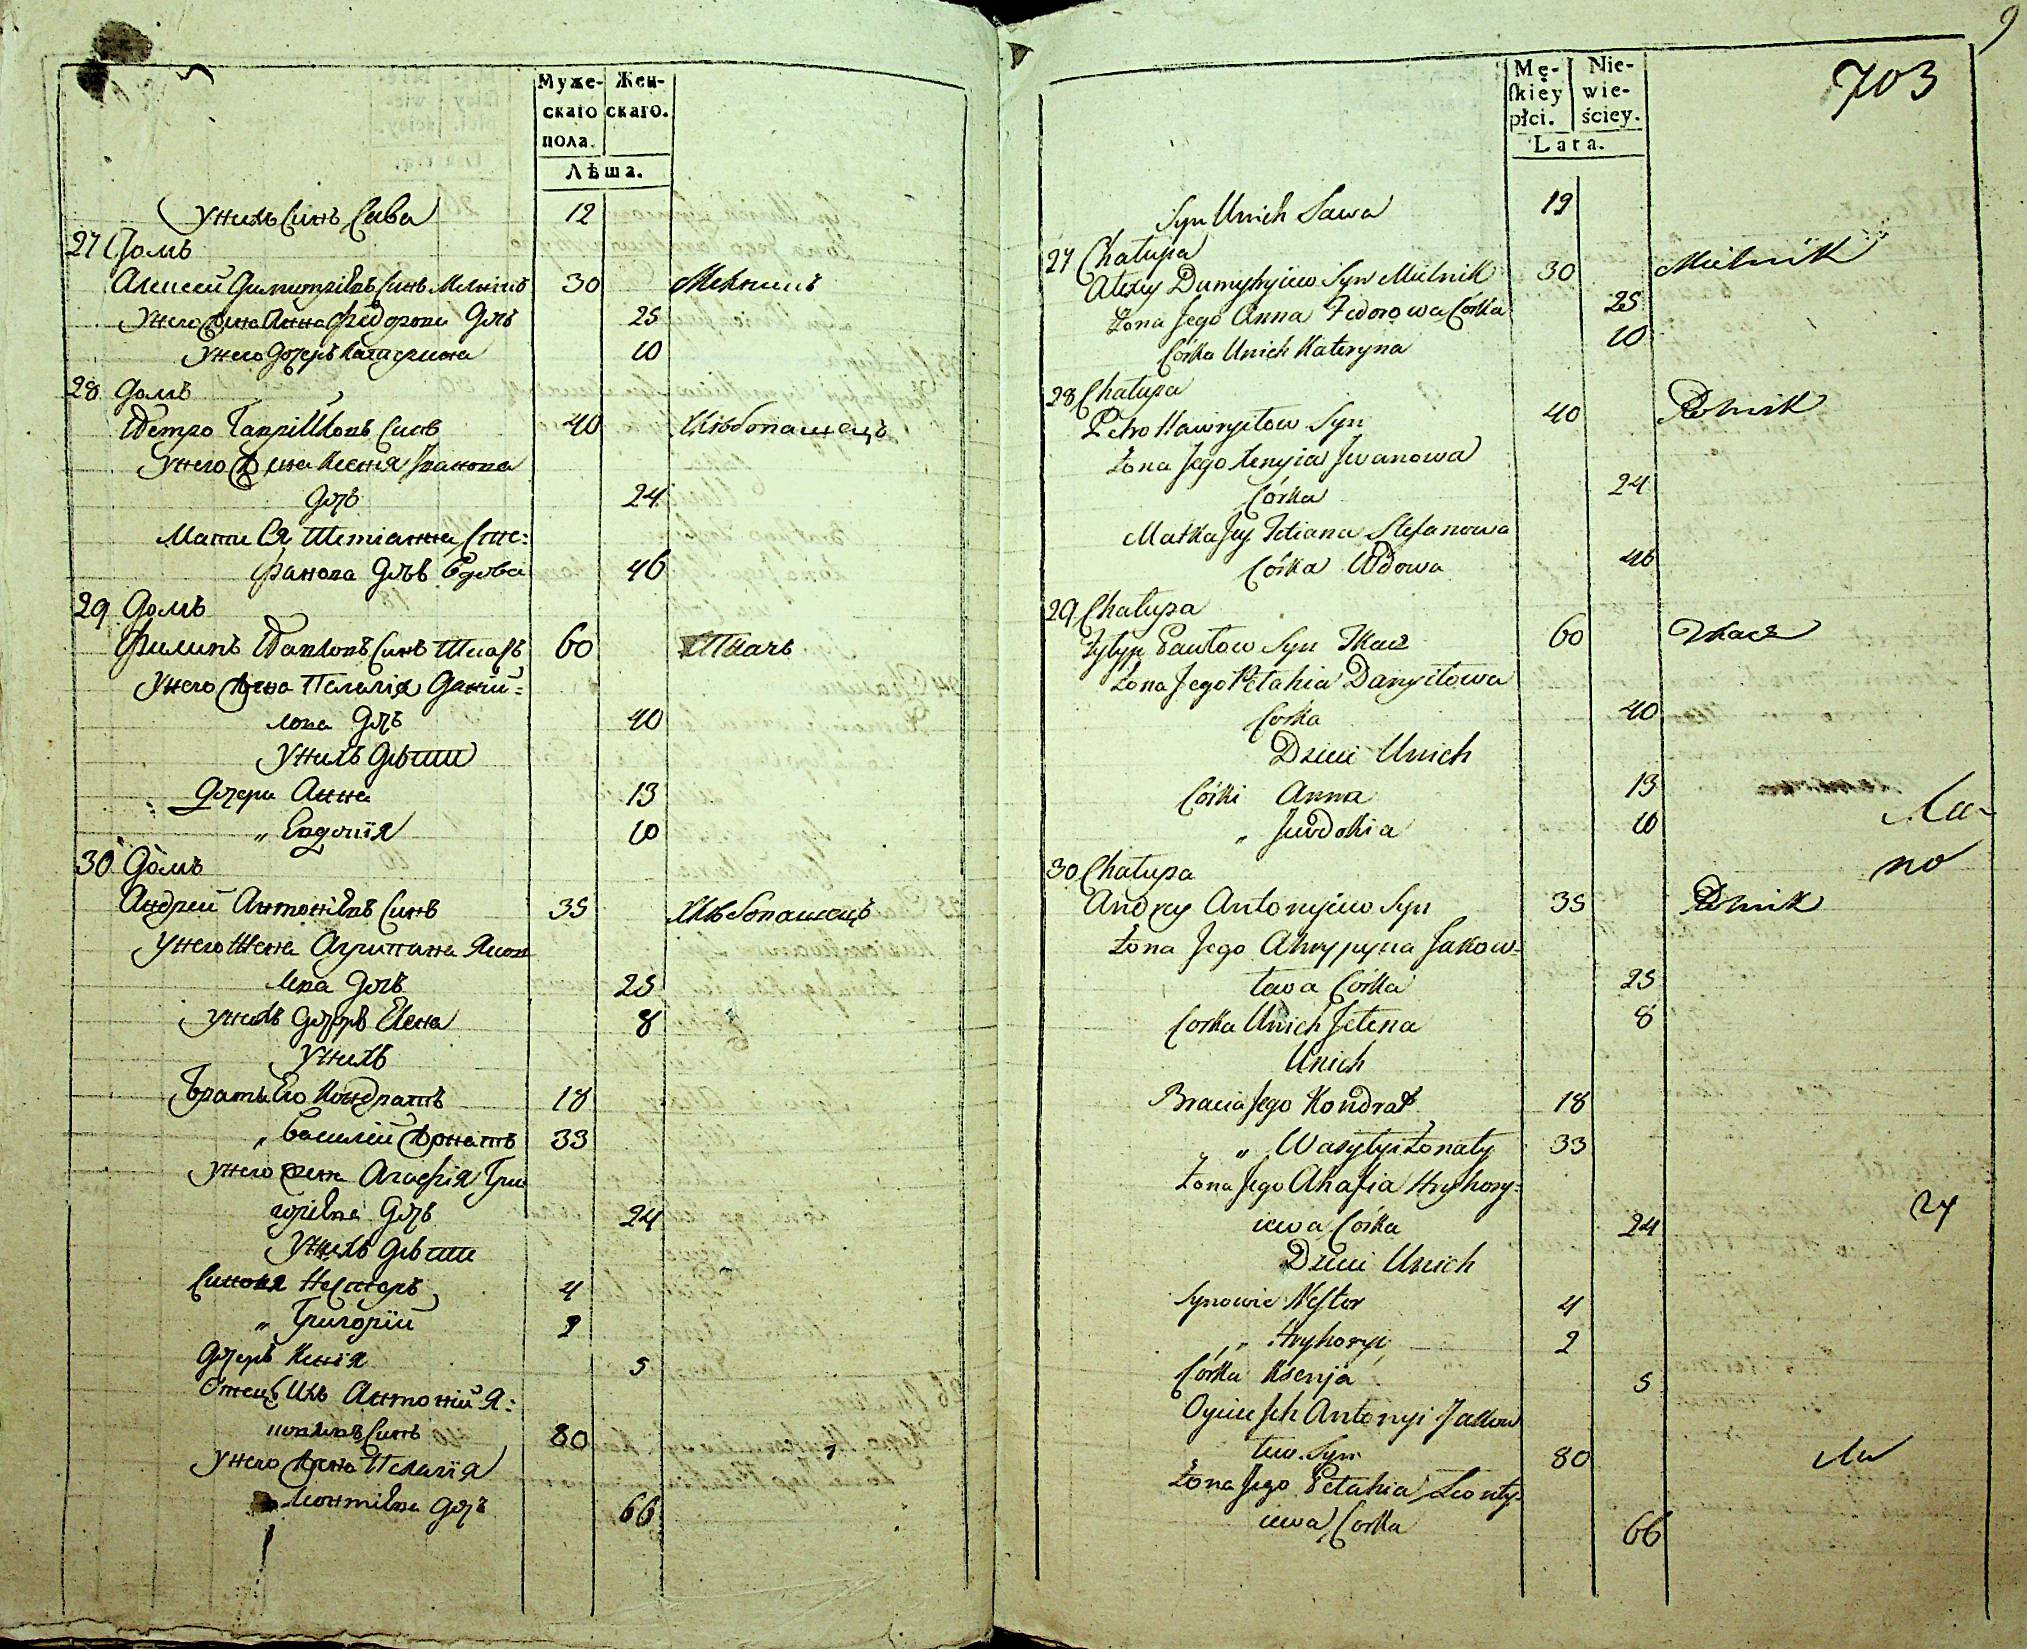 Муже-
скаго
пола.
Жен-
скаго.
Лѣта.
У нихъ Синъ Сава 12
27 Домъ
Алексей Димитріевъ Синъ Мелникъ 30 Мелникъ
У него Жена Анна Федорова Дочь 25
У него Дочерь Катерина 10
28 Домъ
Петро Гавріиловъ Синъ 40 Хлѣбопашецъ
У него Жена Ксенія Іванова
Дочь 24
Мати Ея Тетіанна Сте:
фанова Дочь Вдова 46
29 Домъ
Филипъ Павловъ Синъ Ткачъ 60 Ткачъ
У него Жена Пелагія Даниі:
лова Дочь 40
У нихъ Дѣти
Дочери Анна 13
„ Евдокія 10
30 Домъ
Андрей Антоніевъ Синъ 35 Хлѣбопашецъ
У него Жена Агрипина Яков
лева Дочь 25
У нихъ Дочерь Елена 8
У нихъ
Брати Его Кондратъ 18
„ Василій Жонатъ 33
У него Жена Агафія Гри
горіева Дочь 24
У нихъ Дѣти
Синовя Несторъ 4
„ Григорій 2
Дочерь Ксенія 5
Отецъ Ихъ Антоній Я:
ковлевъ Синъ 80
У него Жена Пелагія
Леонтіева Дочь 66
9
703
Mę-
ſkiey
płci.
Nie-
wie-
ściey.
Lata.
Syn Unich Sawa 12
27 Chałupa
Alexiy Dymytryiew Syn Mielnik 30 Mielnik
Żona Jego Anna Fedorowa Córka 25
Córka Unich Kateryna 10
28 Chałupa
Petro Hawryłow Syn 40 Rolnik
Żona Jego Xenyia Jwanowa
Córka 24
Matka Jey Tetiana Stefanowa
Córka Wdowa 46
29 Chałupa
Fylyp Pawłow Syn Tkacz 60 Tkacz
Żona Jego Pełahia Danyiłowa
Corka 40
Dzieci Unich
Córki Anna 13
„ Juwdokia 10
30 Chałupa
Andrey Antonyiew Syn 35 Rolnik
Żona Jego Ahrypyna Jakow-
lawa Córka 25
Corka Unich Jełena 8
Unich
Bracia Jego Kondrat 18
„ Wasylyi Żonaty 33
Żona Jego Ahafia Hryhory-
iewa Córka 24
Dzieci Unich
Synowie Nestor 4
„ Hryhoryi 2
Córka Ksenja 5
Oyciec Jch Antonyi Jakow
lew Syn 80
Żona Jego Pełahia Leonty-
iewa Corka 66
no
24